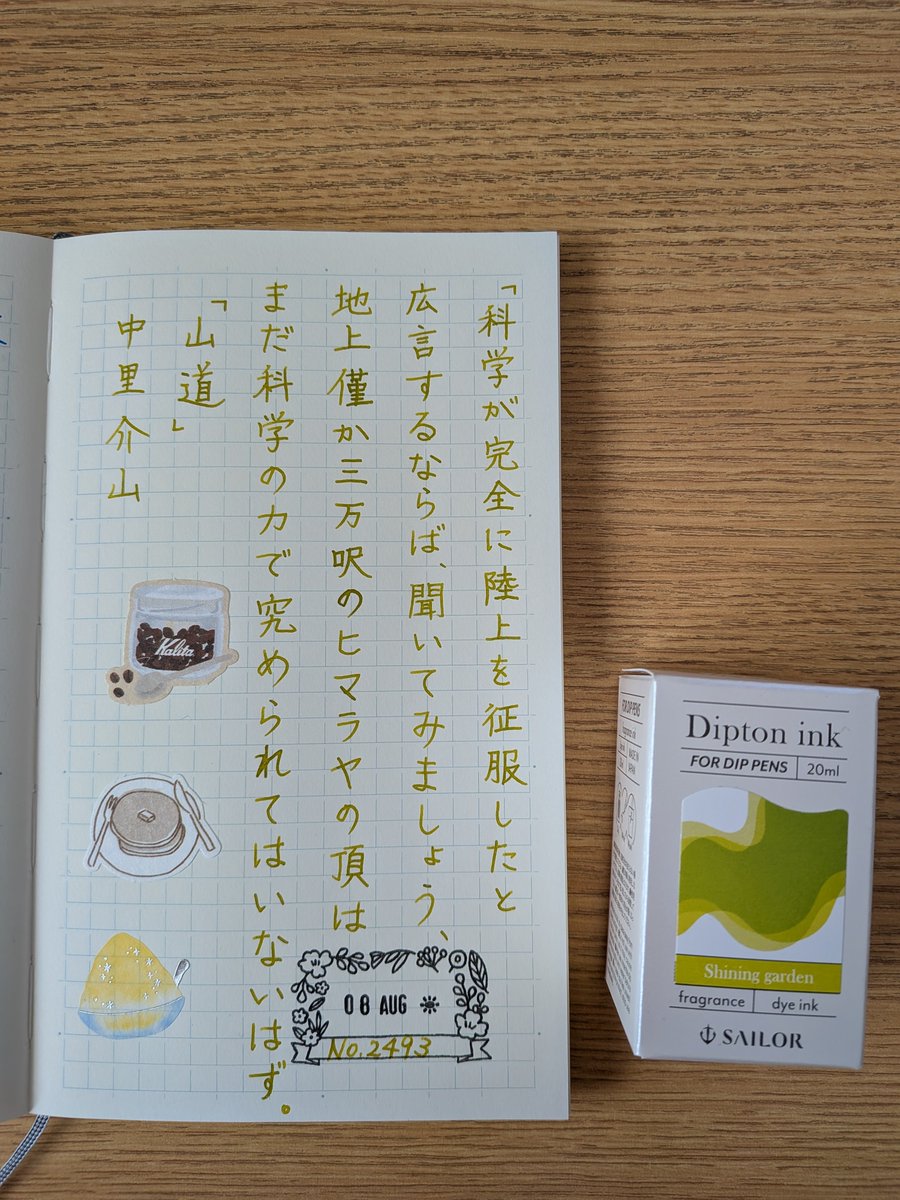 「科学が完全に陸上を征服したと
広言するならば、聞いてみましょう、
地上僅か三万呎のヒマラヤの頂は
まだ科学の力で究められてはいないはず。
「山道」
中里介山
Kalita
08 AUG
No.2493
Dipton ink
FOR DIP PENS
20ml
Shining garden
fragrance
dye ink
SAILOR
FOR DIP PENS